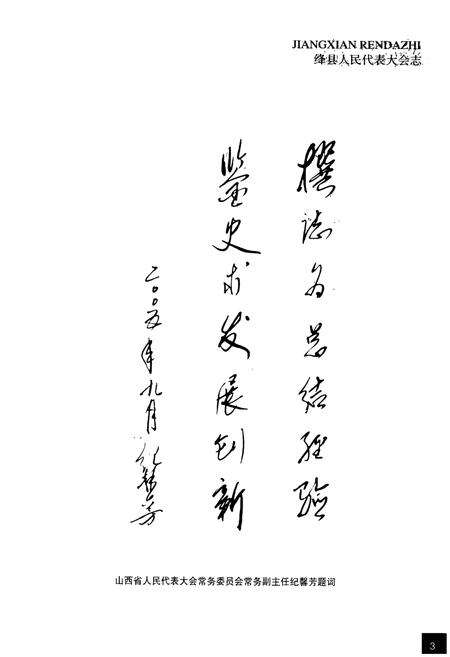 JIANGXIAN RENDAZHI
绛县人民代表大会志
撰誌为总结经验
鉴史求发展创新
二〇〇五年九月 纪馨芳
山西省人民代表大会常务委员会常务副主任纪馨芳题词
3